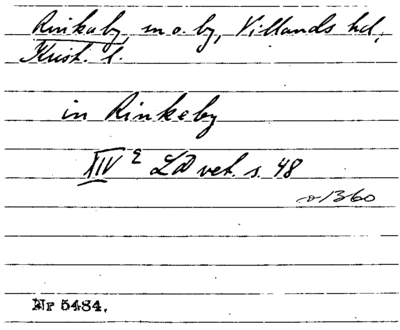 Rinkaby, sn o. by, Villands hd,
Krist. l.
in Rinkeby
XIV 2 LD vet. s. 48
~1360
Nr 5484.